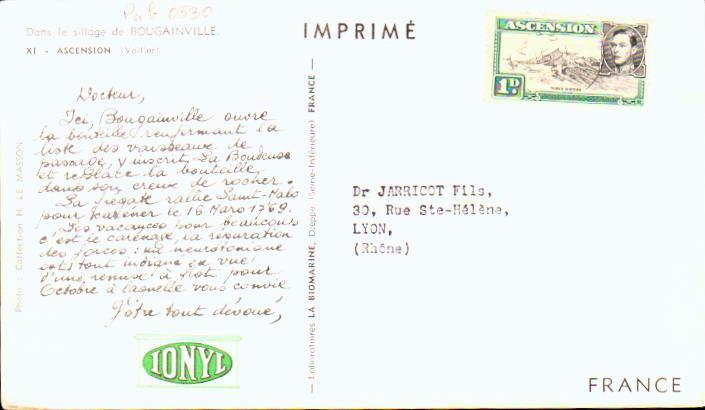 Pub 0530
Dans le sillage de BOUGAINVILLE.
XI - ASCENSION (Voilier)
IMPRIMÉ
ASCENSION
1D
THREE SISTERS
Docteur,
Ici, Bougainville ouvre
la bouteille renfermant la
liste des vaisseaux de
passage, y inscrit La Boudeuse
et replace la bouteille
dans son creux de rocher.
La frégate rallie Saint-Malo
pour caréner le 16 Mars 1769.
Les vacances pour beaucoup
c'est le carénage, la réparation
des forces : un neurotonique
est tout indiqué en vue
d'une remise à flot pour
Octobre à laquelle vous convie
Vôtre tout dévoué,
IONYL
Photo : Collection H. LE MASSON
— Laboratoires LA BIOMARINE, Dieppe (Seine-Inférieure) FRANCE —
Dr JARRICOT Fils,
30, Rue Ste-Hélène,
LYON,
(Rhône)
FRANCE